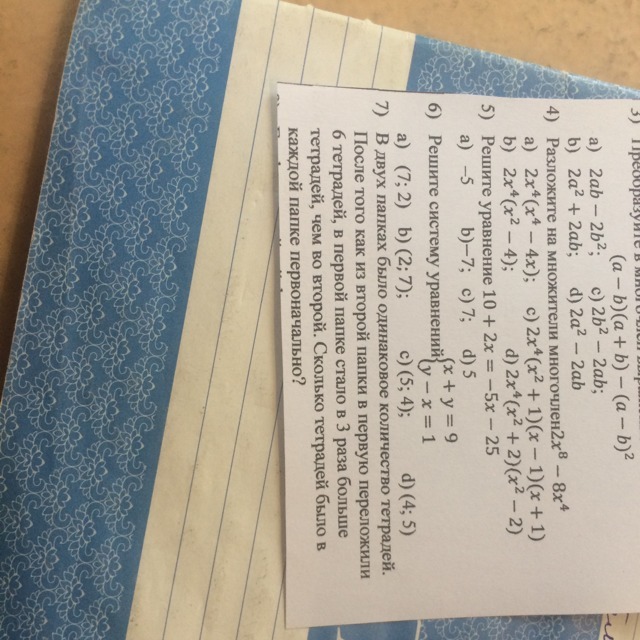 3) Преобразуйте в многочлен
(a − b)(a + b) − (a − b)²
a) 2ab − 2b²; c) 2b² − 2ab;
b) 2a² + 2ab; d) 2a² − 2ab
4) Разложите на множители многочлен2x⁸ − 8x⁴
a) 2x⁴(x⁴ − 4x); c) 2x⁴(x² + 1)(x − 1)(x + 1)
b) 2x⁴(x² − 4); d) 2x⁴(x² + 2)(x² − 2)
5) Решите уравнение 10 + 2x = −5x − 25
a) −5 b)−7; c) 7; d) 5
6) Решите систему уравнений{x + y = 9
y − x = 1
a) (7; 2) b) (2; 7); c) (5; 4); d) (4; 5)
7) В двух папках было одинаковое количество тетрадей.
После того как из второй папки в первую переложили
6 тетрадей, в первой папке стало в 3 раза больше
тетрадей, чем во второй. Сколько тетрадей было в
каждой папке первоначально?